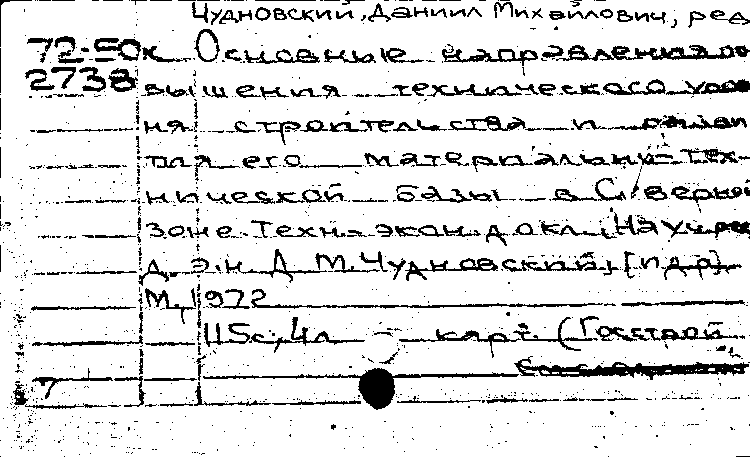 Чудновский, Даниил Михайлович, ред
72-50к Основные направления по
2738 вышения технического уров
ня строительства и
тия его материально-тех-
нической базы в Северной
зоне. Техн.-экон. докл. Науч. ред
д. э. н. Д М. Чудновский, [и др].
М., 1972
115с., 4л карт. (Госстрой
7